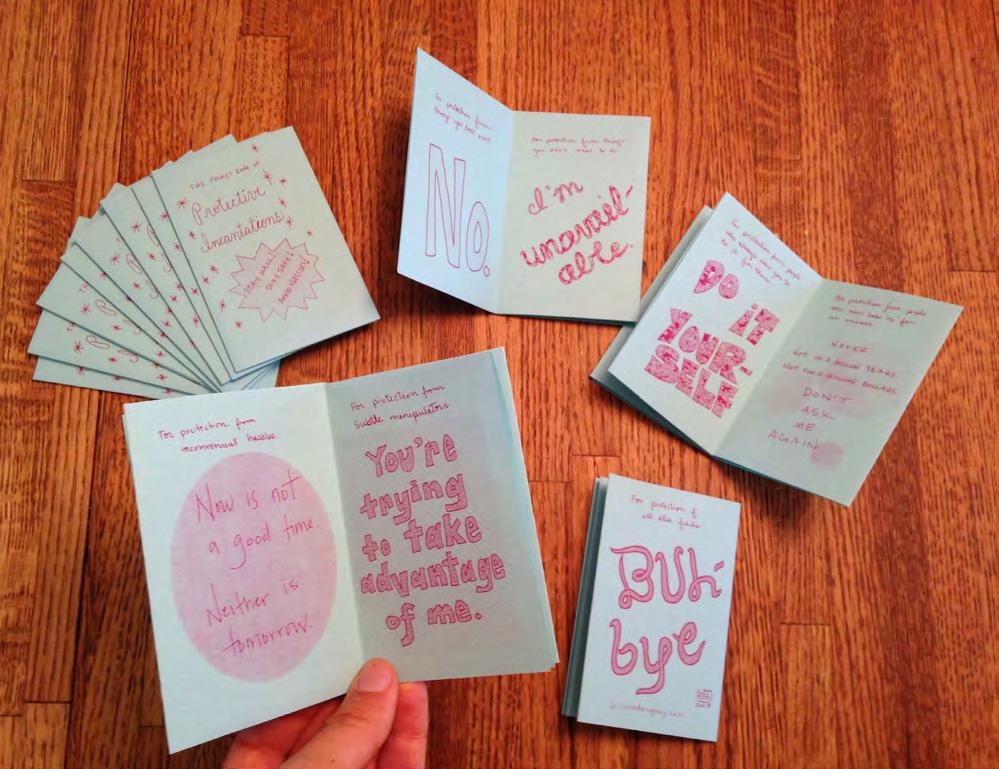 THE POCKET BOOK OF
Protective
Incantations
STAY WELL!
STAY SAFE!
For protection from
No.
For protection from things
you don't want to do
I'm
unavail-
able.
For protection from people
who
you to
do it for them
DO
IT
YOUR-
SELF
For protection from people
who
for
an answer
NEVER.
NOT IN A MILLION YEARS.
NOT FOR A MILLION DOLLARS.
DON'T
ASK
ME
AGAIN
For protection from
inconvenient hassles.
Now is not
a good time.
Neither is
tomorrow.
For protection from
subtle manipulators
You're
trying
to take
advantage
of me.
For protection if
all else fails
BUh-
bye